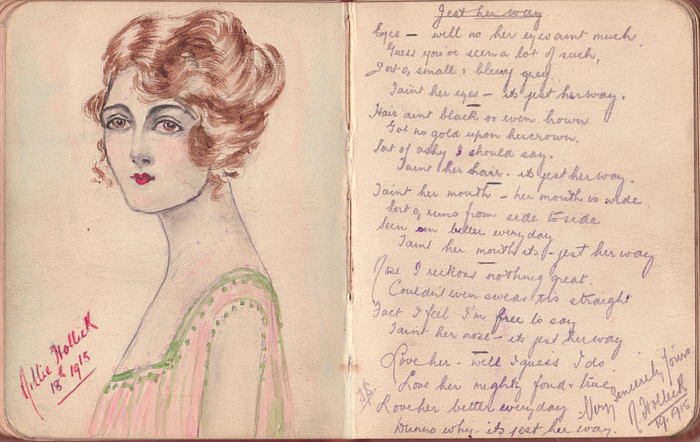 Nillie Hollick
18th 1915
Jest her way
Eyes — well no her eyes aint much
Guess you've seen a lot of such,
Sort o, small & bleuy grey
Taint her eyes — its jest her way.
Hair aint black or even brown
Got no gold upon her crown.
Sort of ashy I should say.
Taint her hair - it jest her way.
Taint her mouth - her mouth is wide
Sort o, runs from side to side
Seen em better every day
Taint her mouth its - jest her way
Nose I reckon nothing great.
Couldn't even swear tis straight
Fact I feel I'm free to say
Taint her nose - it's jest her way
Love her - well I guess I do
Love her mighty fond & true
Love her better every day
Dunno why - its jest her way.
Very Sincerely Yours
N. Hollick
1915